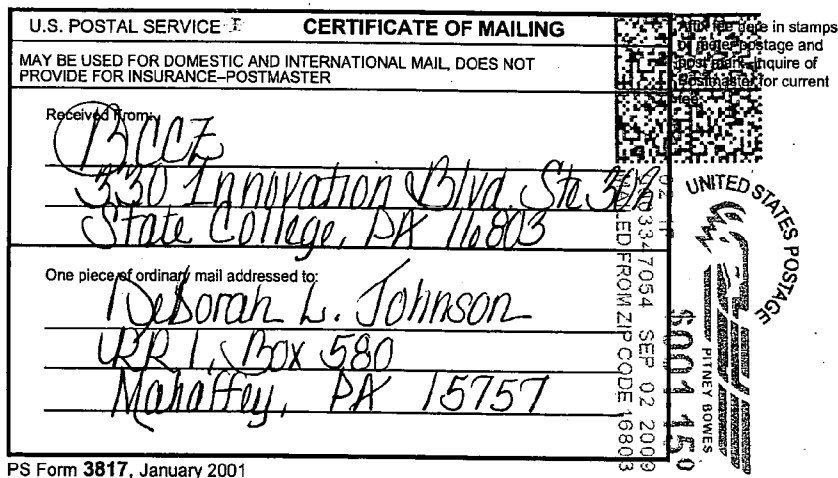 U.S. POSTAL SERVICE CERTIFICATE OF MAILING
MAY BE USED FOR DOMESTIC AND INTERNATIONAL MAIL, DOES NOT
PROVIDE FOR INSURANCE–POSTMASTER
Affix fee here in stamps
or meter postage and
post mark. Inquire of
Postmaster for current
fee.
Received From:
BCCZ
330 Innovation Blvd. Ste 302
State College, PA 16803
One piece of ordinary mail addressed to:
Deborah L. Johnson
RR 1, Box 580
Mahaffey, PA 15757
PS Form 3817, January 2001
UNITED STATES POSTAGE
PITNEY BOWES
02 1P $001.150
3347054 SEP 02 2009
MAILED FROM ZIP CODE 16803